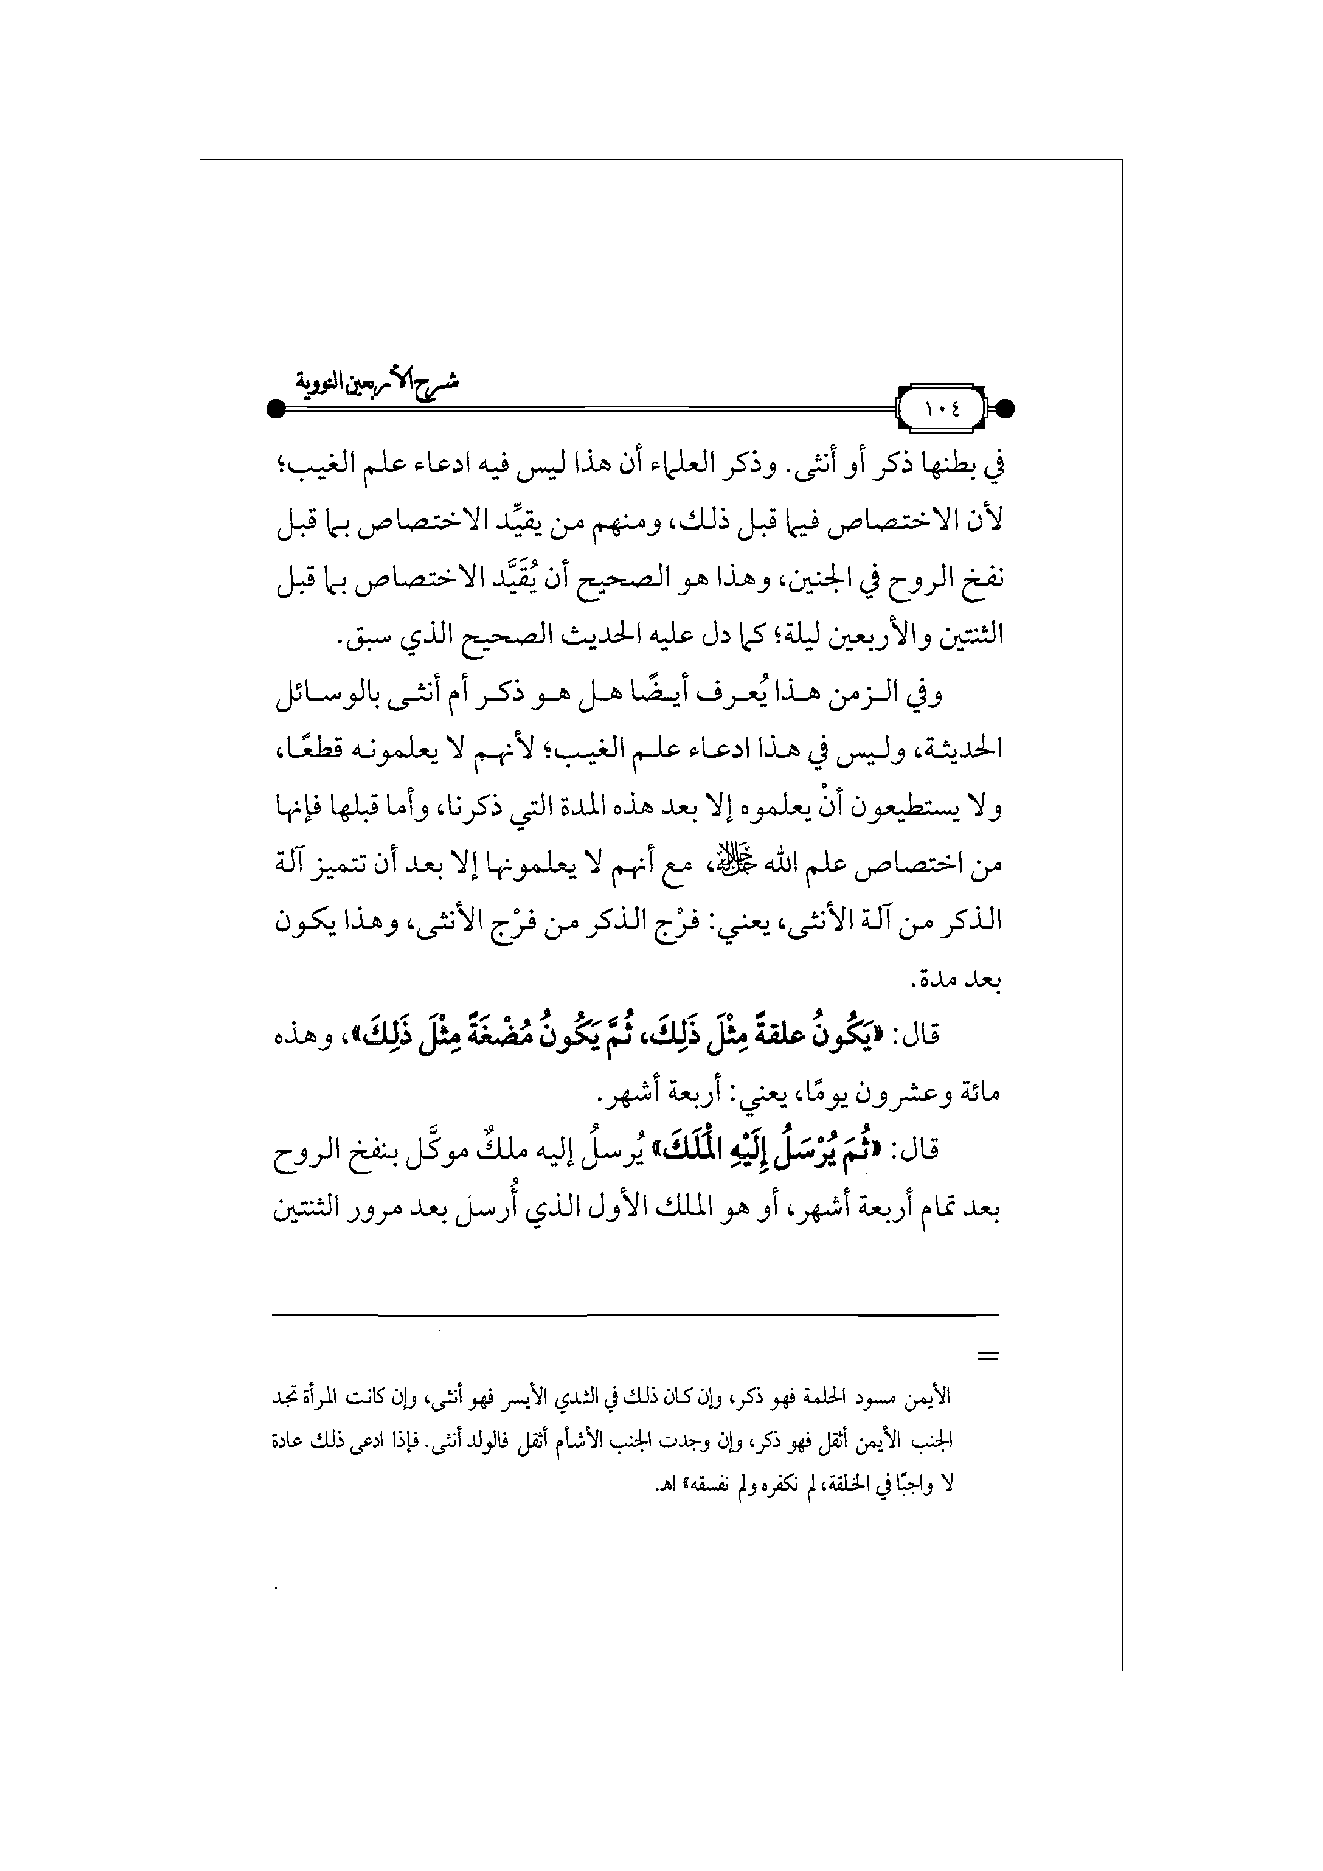 شرح الأربعين النووية
١٠٤
في بطنها ذكر أو أنثى. وذكر العلماء أن هذا ليس فيه ادعاء علم الغيب؛
لأن الاختصاص فيما قبل ذلك، ومنهم من يقيِّد الاختصاص بما قبل
نفخ الروح في الجنين، وهذا هو الصحيح أن يُقَيَّد الاختصاص بما قبل
الثنتين والأربعين ليلة؛ كما دل عليه الحديث الصحيح الذي سبق.
وفي الزمن هذا يُعرف أيضًا هل هو ذكر أم أنثى بالوسائل
الحديثة، وليس في هذا ادعاء علم الغيب؛ لأنهم لا يعلمونه قطعًا،
ولا يستطيعون أنْ يعلموه إلا بعد هذه المدة التي ذكرنا، وأما قبلها فإنها
من اختصاص علم الله ﷻ، مع أنهم لا يعلمونها إلا بعد أن تتميز آلة
الذكر من آلة الأنثى، يعني: فرْج الذكر من فرْج الأنثى، وهذا يكون
بعد مدة.
قال: «يَكُونُ علقةً مِثْلَ ذَلِكَ، ثُمَّ يَكُونُ مُضْغَةً مِثْلَ ذَلِكَ»، وهذه
مائة وعشرون يومًا، يعني: أربعة أشهر.
قال: «ثُمَ يُرْسَلُ إِلَيْهِ الْمَلَكَ» يُرسلُ إليه ملكٌ موكَّل بنفخ الروح
بعد تمام أربعة أشهر، أو هو الملك الأول الذي أُرسل بعد مرور الثنتين
=
الأيمن مسود الحلمة فهو ذكر، وإن كان ذلك في الثدي الأيسر فهو أنثى، وإن كانت المرأة تجد
الجنب الأيمن أثقل فهو ذكر، وإن وجدت الجنب الأشأم أثقل فالولد أنثى. فإذا ادعى ذلك عادة
لا واجبًا في الخلقة، لم نكفره ولم نفسقه» اهـ.